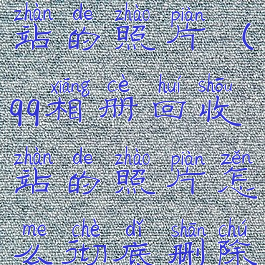 zhàn de zhào piàn
站的照片（
xiàng cè huí shōu
qq相册回收
zhàn de zhào piàn zěn
站的照片怎
me chè dǐ shān chú
么彻底删除